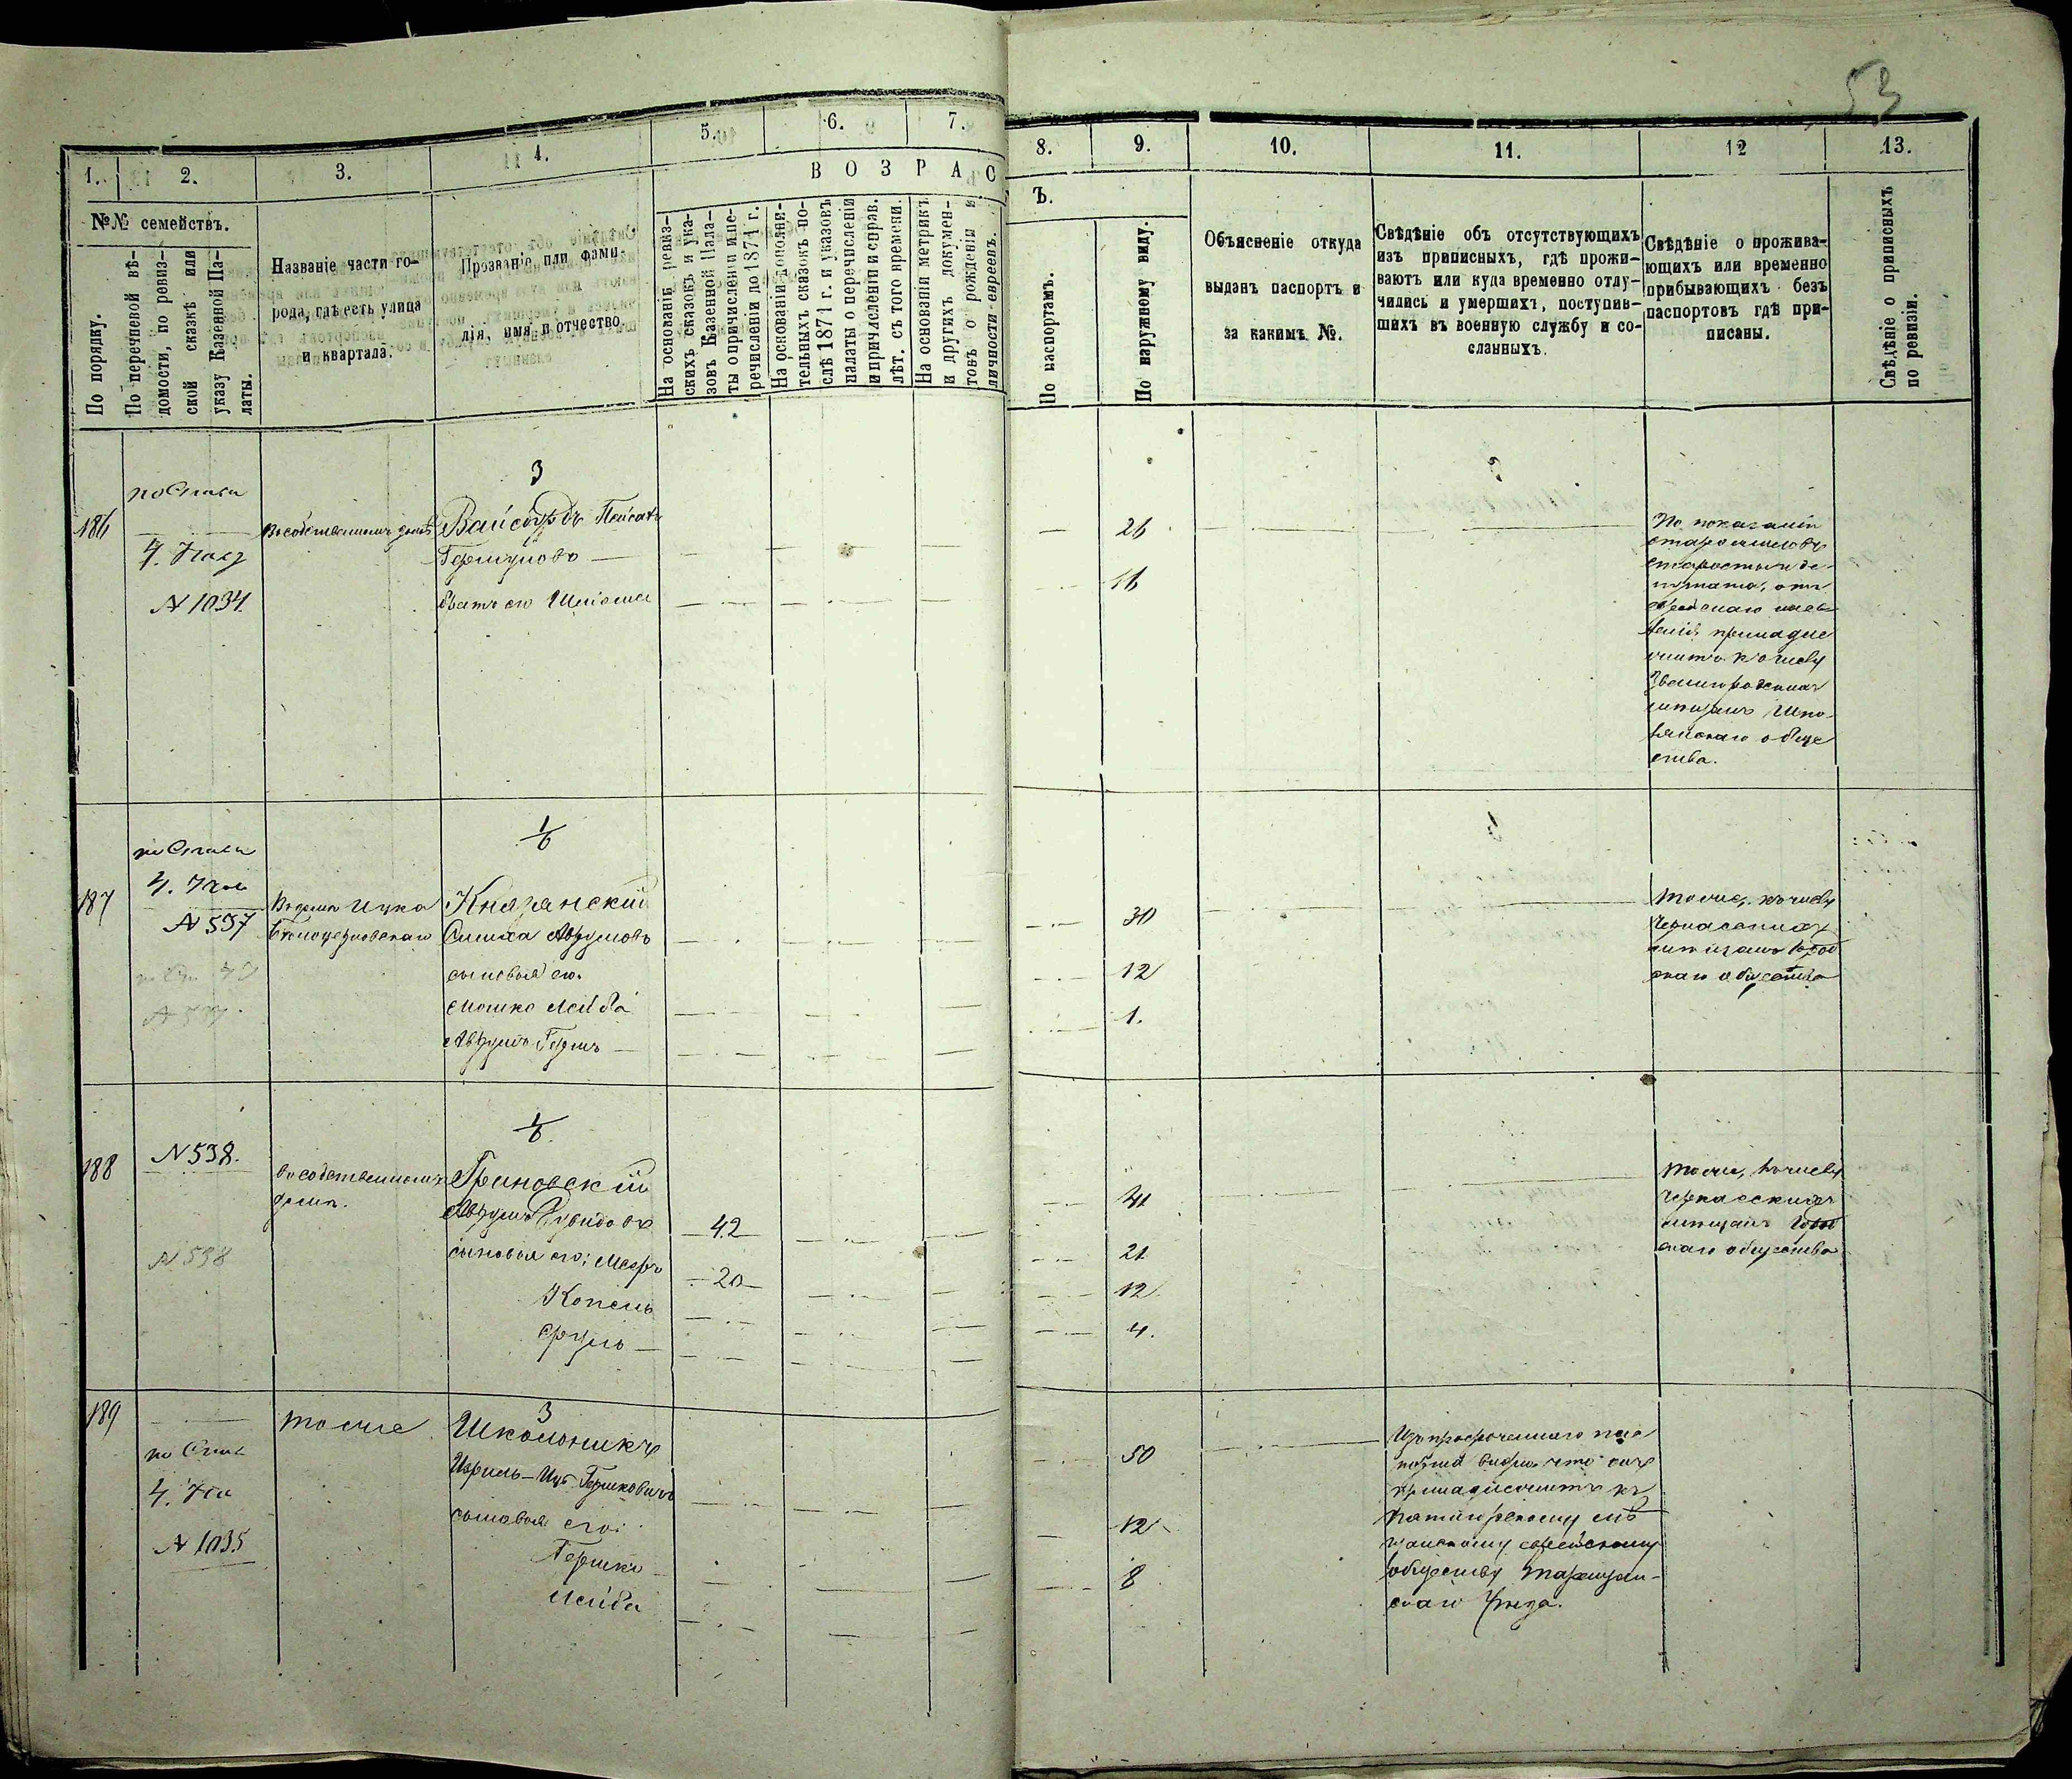 53
1.
2.
3.
4.
5.
6.
7.
8.
9.
10.
11.
12
13.
№№ семействъ.
По порядку.
По перечневой вѣ-
домости, по ревиз-
ской сказкѣ или
указу Казенной Па-
латы.
Названіе части го-
рода, гдѣ есть улица
и квартала.
Прозваніе или фами-
лія, имя и отчество.
ВОЗРАС
Ъ.
На основаніи ревиз-
скихъ сказокъ и ука-
зовъ Казенной Пала-
ты о причисленіи и пе-
речисленіи до 1871 г.
На основаніи дополни-
тельныхъ сказокъ по-
слѣ 1871 г. и указовъ
палаты о перечисленіи
и причисленіи и справ.
лѣт. съ того времени.
На основаніи метрикъ
и другихъ докумен-
товъ о рожденіи и
личности евреевъ.
По паспортамъ.
По наружному виду.
Объясненіе откуда
выданъ паспортъ и
за какимъ №.
Свѣдѣніе объ отсутствующихъ
изъ приписныхъ, гдѣ прожи-
ваютъ или куда временно отлу-
чились и умершихъ, поступив-
шихъ въ военную службу и со-
сланныхъ.
Свѣдѣніе о прожива-
ющихъ или временно
прибывающихъ безъ
паспортовъ гдѣ при-
писаны.
Свѣдѣніе о приписныхъ
по ревизіи.
186
N 1034
Въ собственномъ домѣ
3
Вайсбурдъ Пейсахъ
Гершуновъ
братъ его
26
16
По показанію
старосты и де-
путата, отъ
еврейскаго насе-
ленія принадле
житъ къ числу
Звенигородскихъ
мѣщанъ Шпо-
лянскаго обще
ства.
187
N 537
Въ домѣ Ицка
Бѣлоцерковскаго
1/6
Княжанскій
Симха Аврумовъ
сыновья его.
Мошко Лейба
Аврумъ Гершъ
30
12
1.
Тоже, къ числу
Черкасскихъ
мѣщанъ
скаго общества
188
N 538.
N 538
Въ собственномъ
домѣ.
1/6
Гриновскій
Аврумъ Дувидовъ
сыновья его: Мееръ
Копель
Сруль
42
20
41
21
12
4.
Тоже, къ числу
Черкасскихъ
мѣщанъ
скаго общества
189
N 1035
тоже
3
Школьникъ
Изриль-Ицъ Гершковичъ
сыновья его:
Гершко
Лейба
50
12
8
Изъ просроченнаго пас
порта видно что онъ
принадлежитъ къ
Пятигорскому мѣ
щанскому еврейскому
обществу Таращан-
скаго уѣзда.